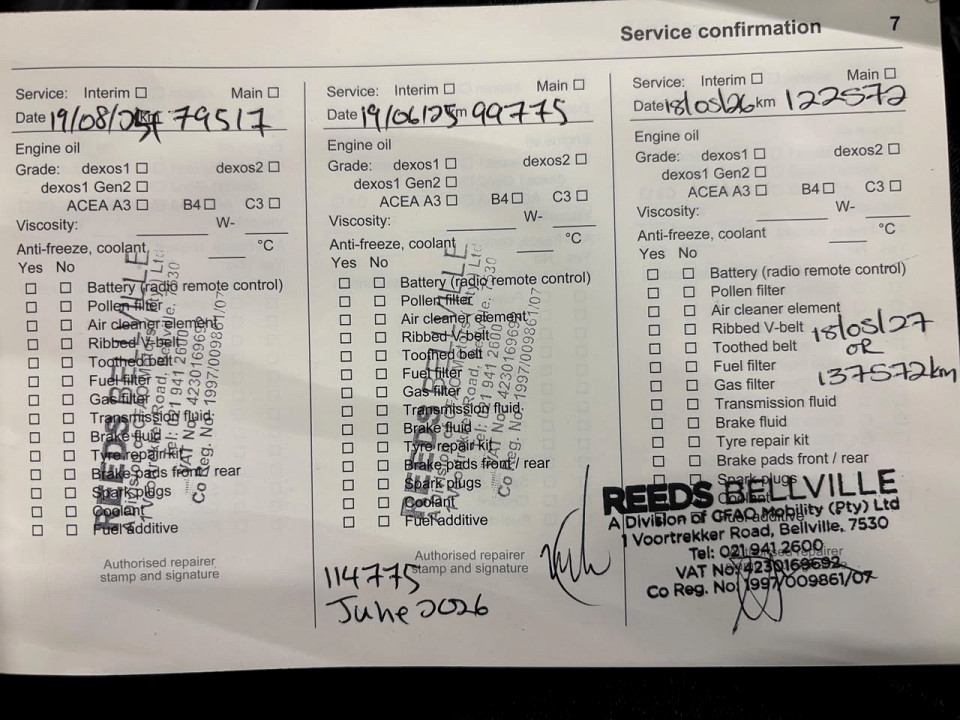 Service confirmation 7
Service: Interim ☐ Main ☐
Date 19/08/24 km 79517
Engine oil
Grade: dexos1 ☐ dexos2 ☐
dexos1 Gen2 ☐
ACEA A3 ☐ B4 ☐ C3 ☐
Viscosity: W-
Anti-freeze, coolant °C
Yes No
☐ ☐ Battery (radio remote control)
☐ ☐ Pollen filter
☐ ☐ Air cleaner element
☐ ☐ Ribbed V-belt
☐ ☐ Toothed belt
☐ ☐ Fuel filter
☐ ☐ Gas filter
☐ ☐ Transmission fluid
☐ ☐ Brake fluid
☐ ☐ Tyre repair kit
☐ ☐ Brake pads front / rear
☐ ☐ Spark plugs
☐ ☐ Coolant
☐ ☐ Fuel additive
Authorised repairer
stamp and signature
REEDS BELLVILLE
A Division of CFAO Mobility (Pty) Ltd
1 Voortrekker Road, Bellville, 7530
Tel: 021 941 2600
VAT No: 4230169692
Co Reg. No: 1997/009861/07
Service: Interim ☐ Main ☐
Date 19/06/25 km 99775
Engine oil
Grade: dexos1 ☐ dexos2 ☐
dexos1 Gen2 ☐
ACEA A3 ☐ B4 ☐ C3 ☐
Viscosity: W-
Anti-freeze, coolant °C
Yes No
☐ ☐ Battery (radio remote control)
☐ ☐ Pollen filter
☐ ☐ Air cleaner element
☐ ☐ Ribbed V-belt
☐ ☐ Toothed belt
☐ ☐ Fuel filter
☐ ☐ Gas filter
☐ ☐ Transmission fluid
☐ ☐ Brake fluid
☐ ☐ Tyre repair kit
☐ ☐ Brake pads front / rear
☐ ☐ Spark plugs
☐ ☐ Coolant
☐ ☐ Fuel additive
Authorised repairer
stamp and signature
114775
June 2026
REEDS BELLVILLE
A Division of CFAO Mobility (Pty) Ltd
1 Voortrekker Road, Bellville, 7530
Tel: 021 941 2600
VAT No: 4230169692
Co Reg. No: 1997/009861/07
Service: Interim ☐ Main ☐
Date 18/05/26 km 122572
Engine oil
Grade: dexos1 ☐ dexos2 ☐
dexos1 Gen2 ☐
ACEA A3 ☐ B4 ☐ C3 ☐
Viscosity: W-
Anti-freeze, coolant °C
Yes No
☐ ☐ Battery (radio remote control)
☐ ☐ Pollen filter
☐ ☐ Air cleaner element
☐ ☐ Ribbed V-belt
☐ ☐ Toothed belt
☐ ☐ Fuel filter
☐ ☐ Gas filter
☐ ☐ Transmission fluid
☐ ☐ Brake fluid
☐ ☐ Tyre repair kit
☐ ☐ Brake pads front / rear
☐ ☐ Spark plugs
Coolant
Fuel additive
repairer
18/05/27
OR
137572 km
REEDS BELLVILLE
A Division of CFAO Mobility (Pty) Ltd
1 Voortrekker Road, Bellville, 7530
Tel: 021 941 2600
VAT No: 4230169692
Co Reg. No: 1997/009861/07